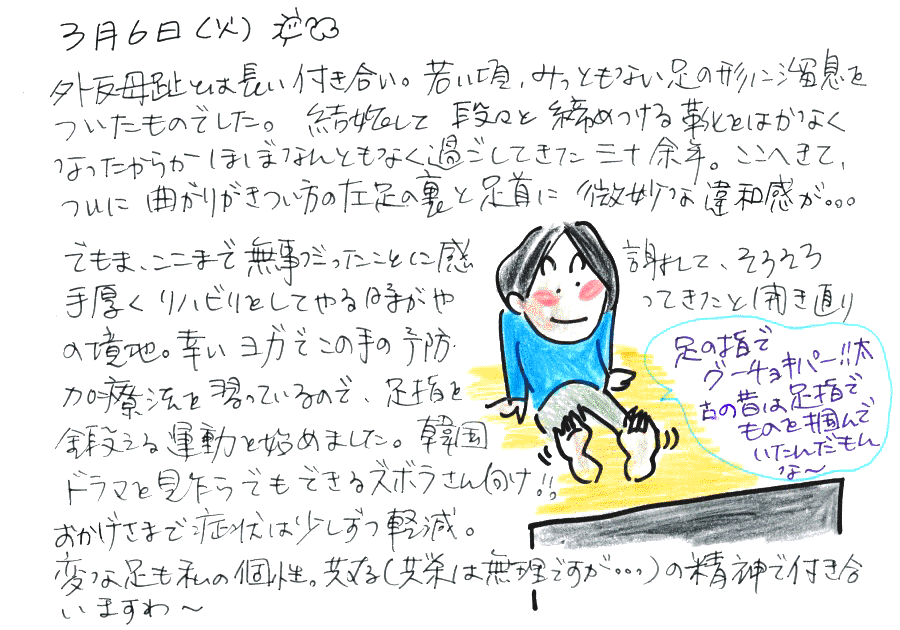 3月6日(火)
外反母趾とは長い付き合い。若い頃、みっともない足の形に溜息を
ついたものでした。結婚して段々と締めつける靴をはかなく
なったからかほぼなんともなく過ごしてきた三十余年。ここへきて、
ついに曲がりがきつい方の左足の裏と足首に微妙な違和感が…
でもま、ここまで無事だったことに感謝して、そろそろ
手厚くリハビリをしてやる時がやってきたと開き直り
の境地。幸いヨガでこの手の予防
加療法を習っているので、足指を
鍛える運動を始めました。韓国
ドラマを見ながらでもできるズボラさん向け!!
おかげさまで症状は少しずつ軽減。
変な足も私の個性。共存(共栄は無理ですが…)の精神で付き合
いますわ〜
足の指で
グーチョキパー!!太
古の昔は足指で
ものを掴んで
いたんだもん
な〜